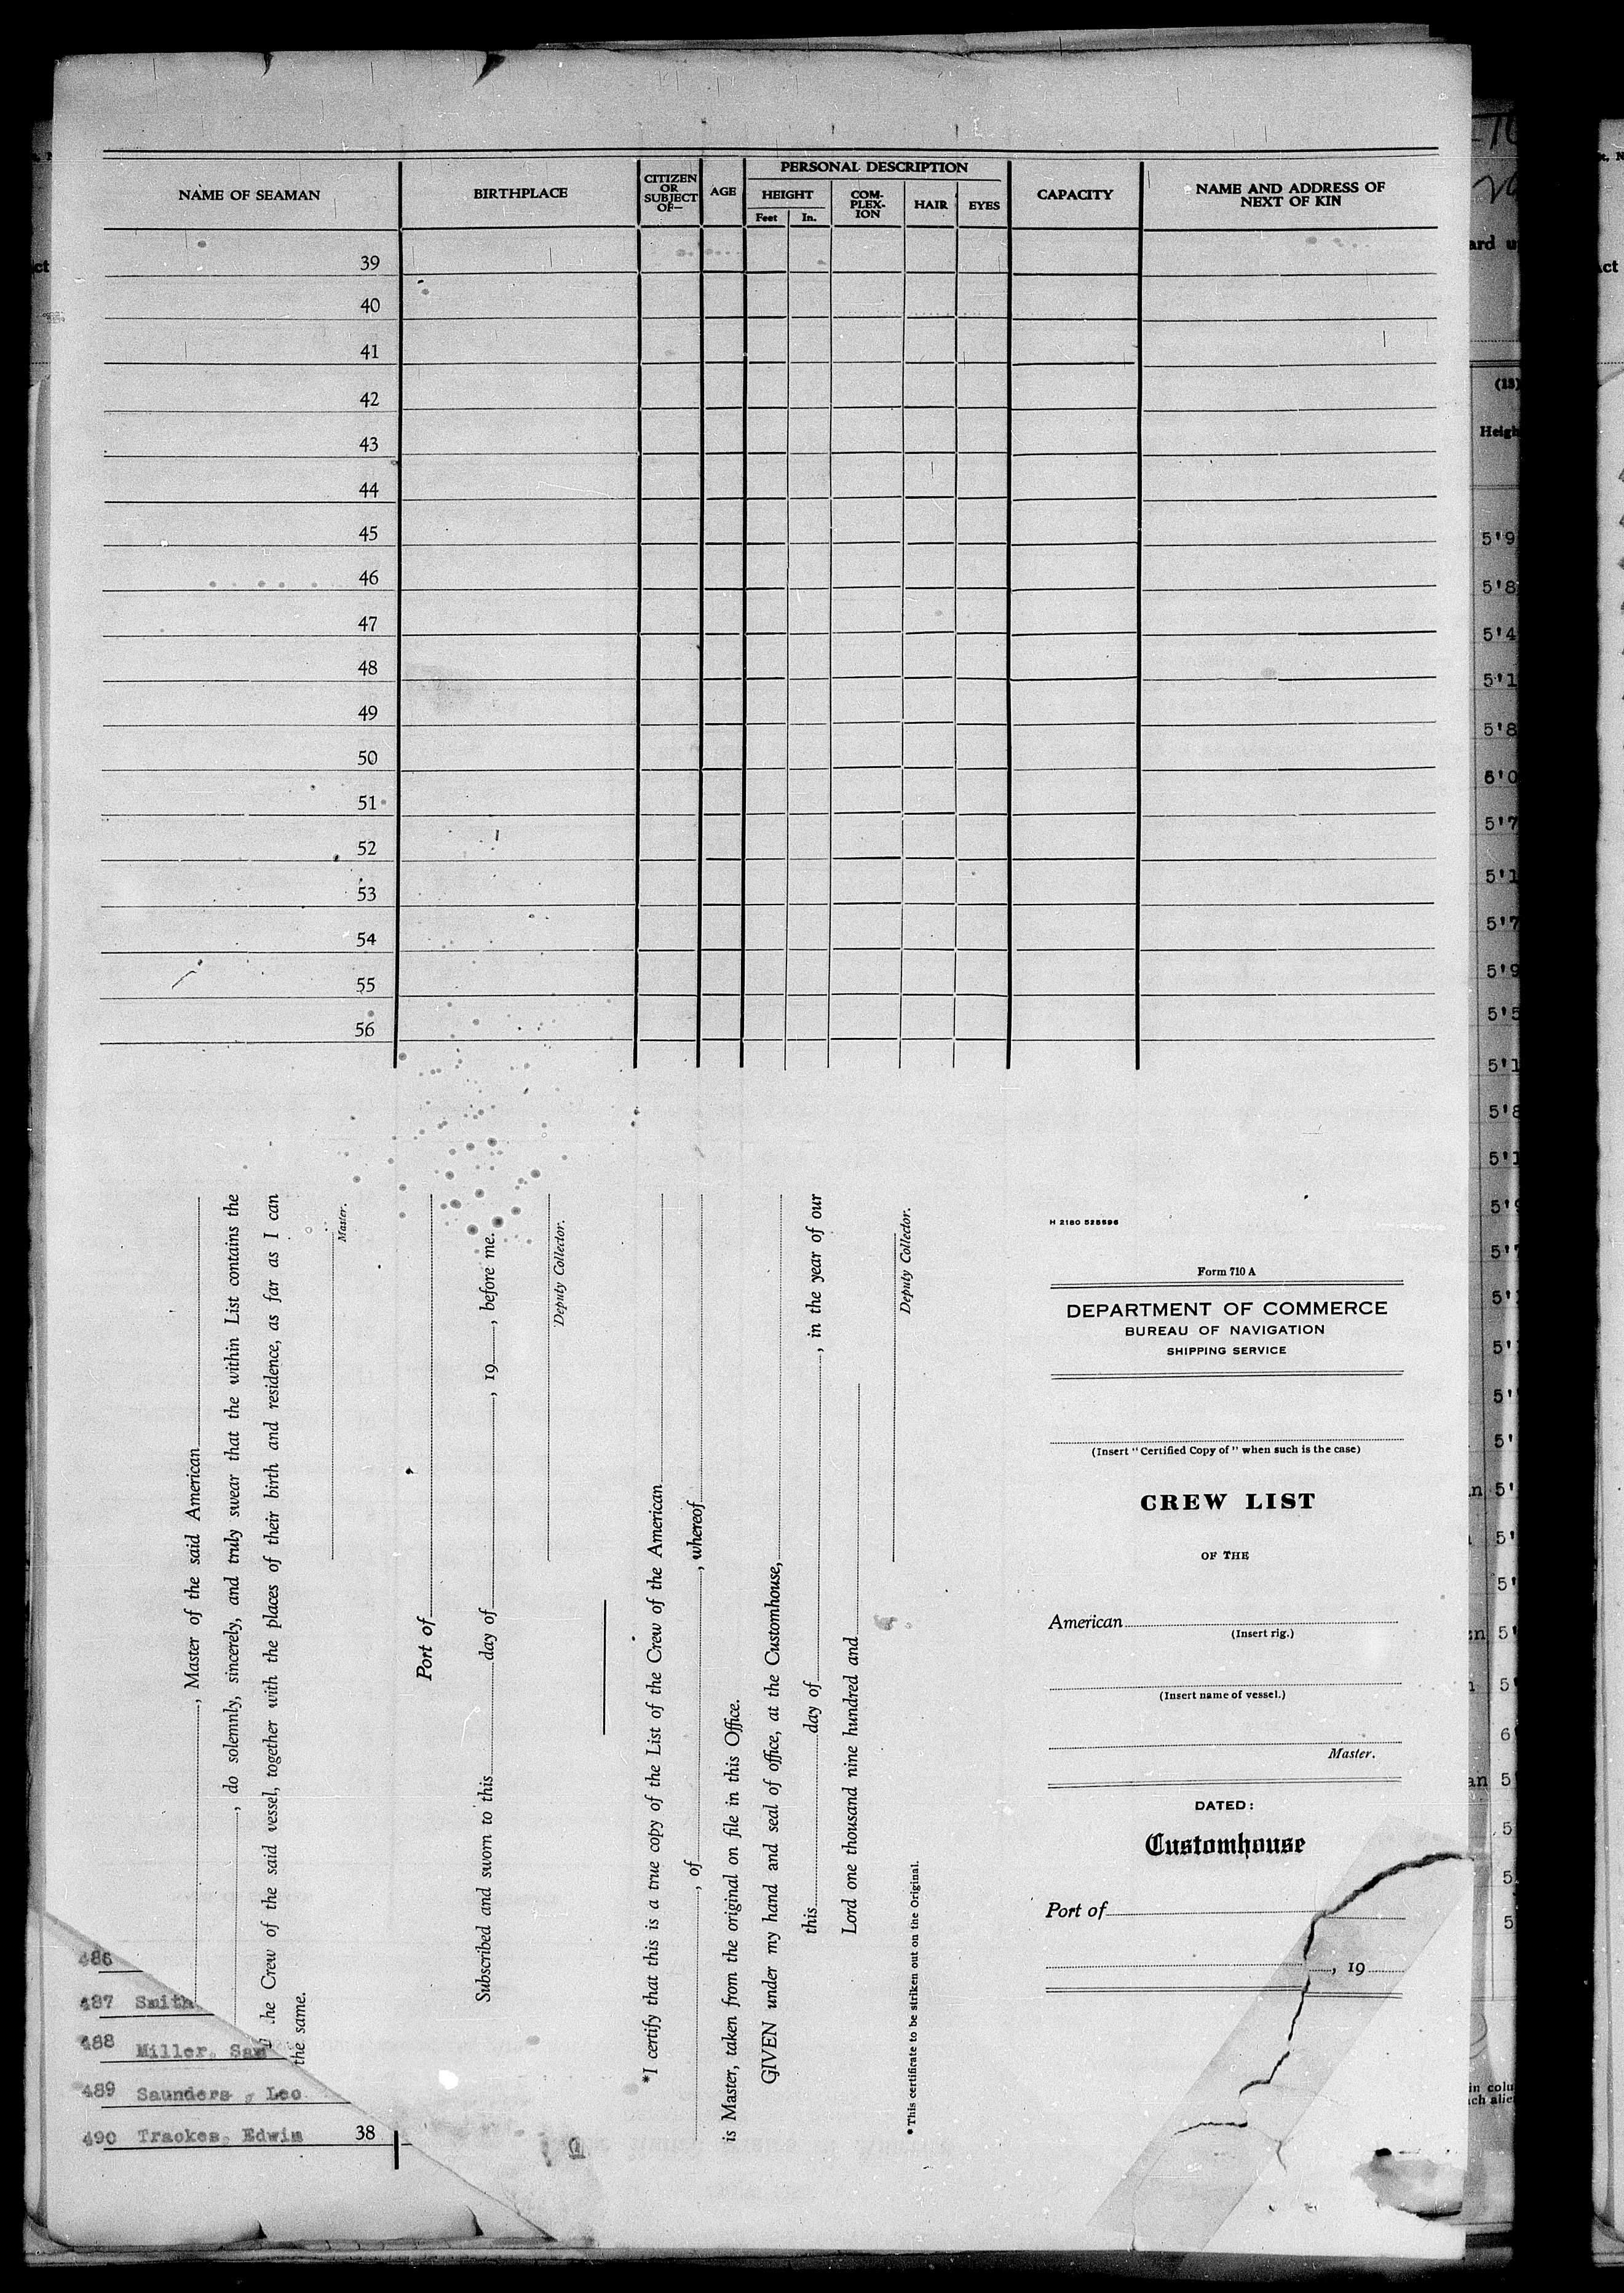 NAME OF SEAMAN
BIRTHPLACE
CITIZEN OR SUBJECT OF—
AGE
PERSONAL DESCRIPTION
HEIGHT
Feet
In.
COM-PLEX-ION
HAIR
EYES
CAPACITY
NAME AND ADDRESS OF NEXT OF KIN
39
40
41
42
43
44
45
46
47
48
49
50
51
52
53
54
55
56
, Master of the said American
, do solemnly, sincerely, and truly swear that the within List contains the
he Crew of the said vessel, together with the places of their birth and residence, as far as I can
the same.
Master.
Port of
Subscribed and sworn to this day of , 19 , before me.
Deputy Collector.
*I certify that this is a true copy of the List of the Crew of the American
, of , whereof
is Master, taken from the original on file in this Office.
GIVEN under my hand and seal of office, at the Customhouse,
this day of , in the year of our
Lord one thousand nine hundred and
Deputy Collector.
*This certificate to be striken out on the Original.
H 2180 525596
Form 710 A
DEPARTMENT OF COMMERCE
BUREAU OF NAVIGATION
SHIPPING SERVICE
(Insert "Certified Copy of" when such is the case)
CREW LIST
OF THE
American
(Insert rig.)
(Insert name of vessel.)
Master.
DATED:
Customhouse
Port of
, 19
486
487 Smith
488 Miller, Sam
489 Saunders, Leo
490 Trackes, Edwin 38
ard u
(13)
Heigh
5'9
5'8
5'4
5'1
5'8
6'0
5'7
5'1
5'7
5'9
5'5
5'1
5'8
5'1
in colu
ach alie